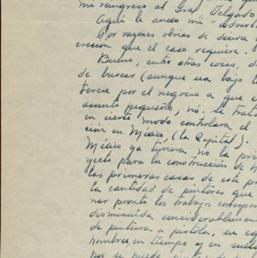 mi reingreso al Gral. Delgado
Aqui le anexo mi
Por razones obvias de
creción que el caso requiere.
Bueno, entre otras cosas,
de buscar (aunque sea bajo
tercia por el negocio a que
asunto pequeño, no. Se trata
en cierto modo controlara el
ción en México (la Capital).
México ya tuviera no la
yecto para la construcción de
las primeras casas de este
la cantidad de pintores que
nar pronto los trabajos
disminuida considerablemen
de pintura a pistola, en
hombres, en tiempo y en